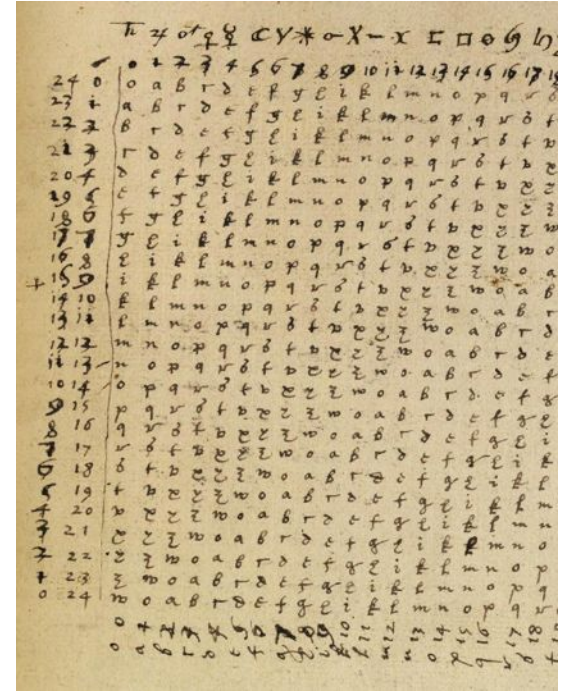 ♄ ♃ ♂ ♀ ☿ ☾ Y * X − x □
0 1 2 3 4 5 6 7 8 9 10 11 12 13 14 15 16 17
24 0 o a b c d e f g h i k l m n o p q r s
23 1 a b c d e f g h i k l m n o p q r s t
22 2 b c d e f g h i k l m n o p q r s t v
21 3 c d e f g h i k l m n o p q r s t v x
20 4 d e f g h i k l m n o p q r s t v x y
19 5 e f g h i k l m n o p q r s t v x y z
18 6 f g h i k l m n o p q r s t v x y z w
17 7 g h i k l m n o p q r s t v x y z w o
16 8 h i k l m n o p q r s t v x y z w o a
+ 15 9 i k l m n o p q r s t v x y z w o a b
14 10 k l m n o p q r s t v x y z w o a b c
13 11 l m n o p q r s t v x y z w o a b c d
12 12 m n o p q r s t v x y z w o a b c d e
11 13 n o p q r s t v x y z w o a b c d e f
10 14 o p q r s t v x y z w o a b c d e f g
9 15 p q r s t v x y z w o a b c d e f g h
8 16 q r s t v x y z w o a b c d e f g h i
7 17 r s t v x y z w o a b c d e f g h i k
6 18 s t v x y z w o a b c d e f g h i k l
5 19 t v x y z w o a b c d e f g h i k l m
4 20 v x y z w o a b c d e f g h i k l m n
3 21 x y z w o a b c d e f g h i k l m n o
2 22 y z w o a b c d e f g h i k l m n o p
1 23 z w o a b c d e f g h i k l m n o p q
0 24 w o a b c d e f g h i k l m n o p q r
0 1 2 3 4 5 6 7 8 9 10 11 12 13 14 15 16 17 18
o a b c d e f g h i k l m n o p q r s